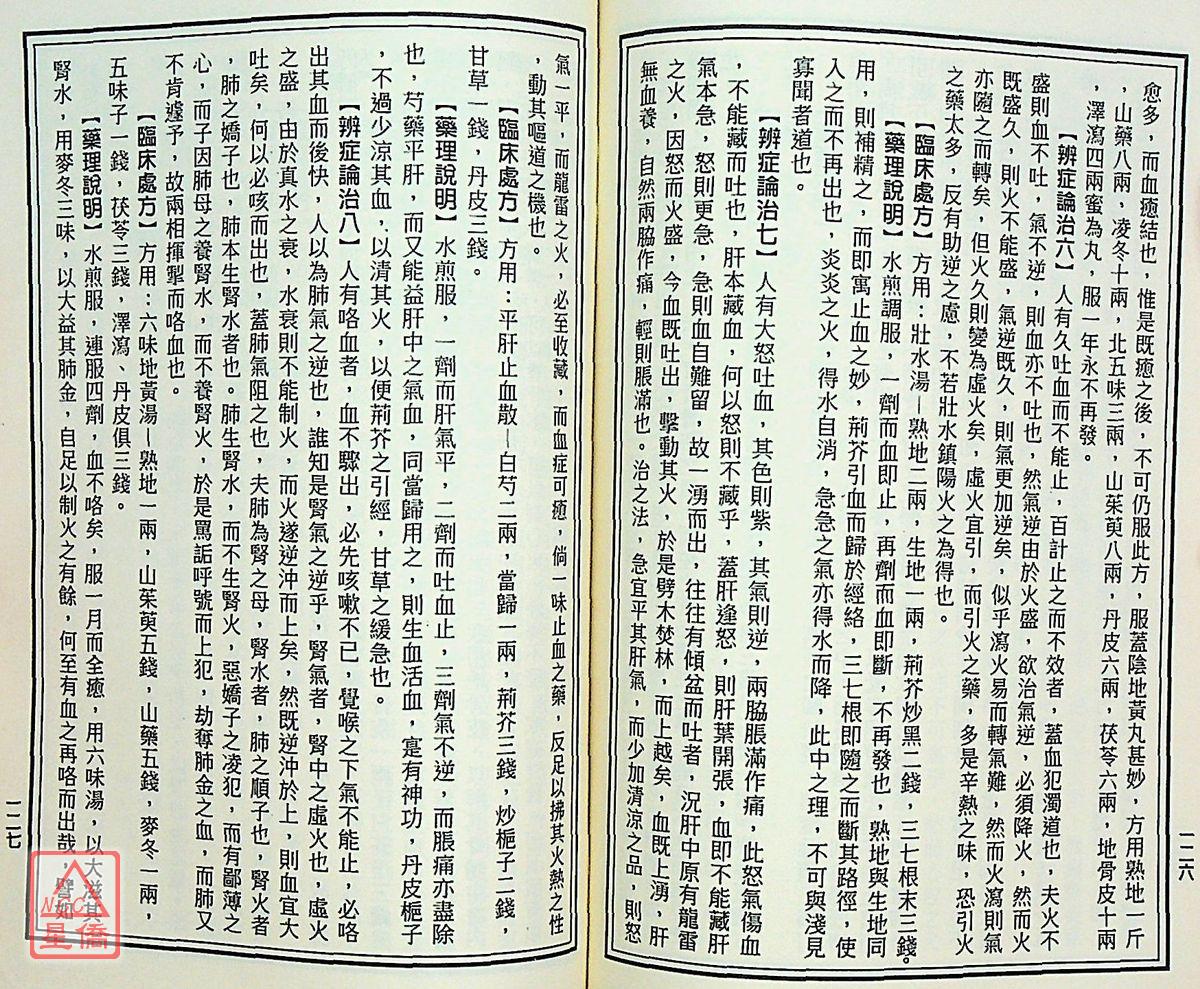 愈多，而血癒結也，惟是既癒之後，不可仍服此方，服蓋陰地黃丸甚妙，方用熟地一斤
，山藥八兩，凌冬十兩，北五味三兩，山茱萸八兩，丹皮六兩，茯苓六兩，地骨皮十兩
，澤瀉四兩蜜為丸，服一年永不再發。
【辨症論治六】人有久吐血而不能止，百計止之而不效者，蓋血犯濁道也，夫火不
盛則血不吐，氣不逆，則血亦不吐也，然氣逆由於火盛，欲治氣逆，必須降火，然而火
既盛久，則火不能盛，氣逆既久，則氣更加逆矣，似乎瀉火易而轉氣難，然而火瀉則氣
亦隨之而轉矣，但火久則變為虛火矣，虛火宜引，而引火之藥，多是辛熱之味，恐引火
之藥太多，反有助逆之慮，不若壯水鎮陽火之為得也。
【臨床處方】方用：壯水湯—熟地二兩，生地一兩，荊芥炒黑二錢，三七根末三錢。
【藥理說明】水煎調服，一劑而血即止，再劑而血即斷，不再發也，熟地與生地同
用，則補精之，而即寓止血之妙，荊芥引血而歸於經絡，三七根即隨之而斷其路徑，使
入之而不再出也，炎炎之火，得水自消，急急之氣亦得水而降，此中之理，不可與淺見
寡聞者道也。
【辨症論治七】人有大怒吐血，其色則紫，其氣則逆，兩脇脹滿作痛，此怒氣傷血
，不能藏而吐也，肝本藏血，何以怒則不藏乎，蓋肝逢怒，則肝葉開張，血即不能藏肝
氣本急，怒則更急，急則血自難留，故一湧而出，往往有傾盆而吐者，況肝中原有龍雷
之火，因怒而火盛，今血既吐出，擊動其火，於是劈木焚林，而上越矣，血既上湧，肝
無血養，自然兩脇作痛，輕則脹滿也。治之法，急宜平其肝氣，而少加清涼之品，則怒
一二六
氣一平，而龍雷之火，必至收藏，而血症可癒，倘一味止血之藥，反足以拂其火熱之性
，動其嘔道之機也。
【臨床處方】方用：平肝止血散—白芍二兩，當歸一兩，荊芥三錢，炒梔子二錢，
甘草一錢，丹皮三錢。
【藥理說明】水煎服，一劑而肝氣平，二劑而吐血止，三劑氣不逆，而脹痛亦盡除
也，芍藥平肝，而又能益肝中之氣血，同當歸用之，則生血活血，寔有神功，丹皮梔子
，不過少涼其血，以清其火，以便荊芥之引經，甘草之緩急也。
【辨症論治八】人有咯血者，血不驟出，必先咳嗽不已，覺喉之下氣不能止，必咯
出其血而後快，人以為肺氣之逆也，誰知是腎氣之逆乎，腎氣者，腎中之虛火也，虛火
之盛，由於真水之衰，水衰則不能制火，而火遂逆沖而上矣，然既逆沖於上，則血宜大
吐矣，何以必咳而出也，蓋肺氣阻之也，夫肺為腎之母，腎水者，肺之順子也，腎火者
，肺之嬌子也，肺本生腎水者也。肺生腎水，而不生腎火，惡嬌子之凌犯，而有鄙薄之
心，而子因肺母之養腎水，而不養腎火，於是罵詬呼號而上犯，劫奪肺金之血，而肺又
不肯遽予，故兩相揮掣而咯血也。
【臨床處方】方用：六味地黃湯—熟地一兩，山茱萸五錢，山藥五錢，麥冬一兩，
五味子一錢，茯苓三錢，澤瀉、丹皮俱三錢。
【藥理說明】水煎服，連服四劑，血不咯矣，服一月而全癒，用六味湯，以大滋其
腎水，用麥冬三味，以大益其肺金，自足以制火之有餘，何至有血之再咯而出哉，譬如
一二七
NCC
星僑